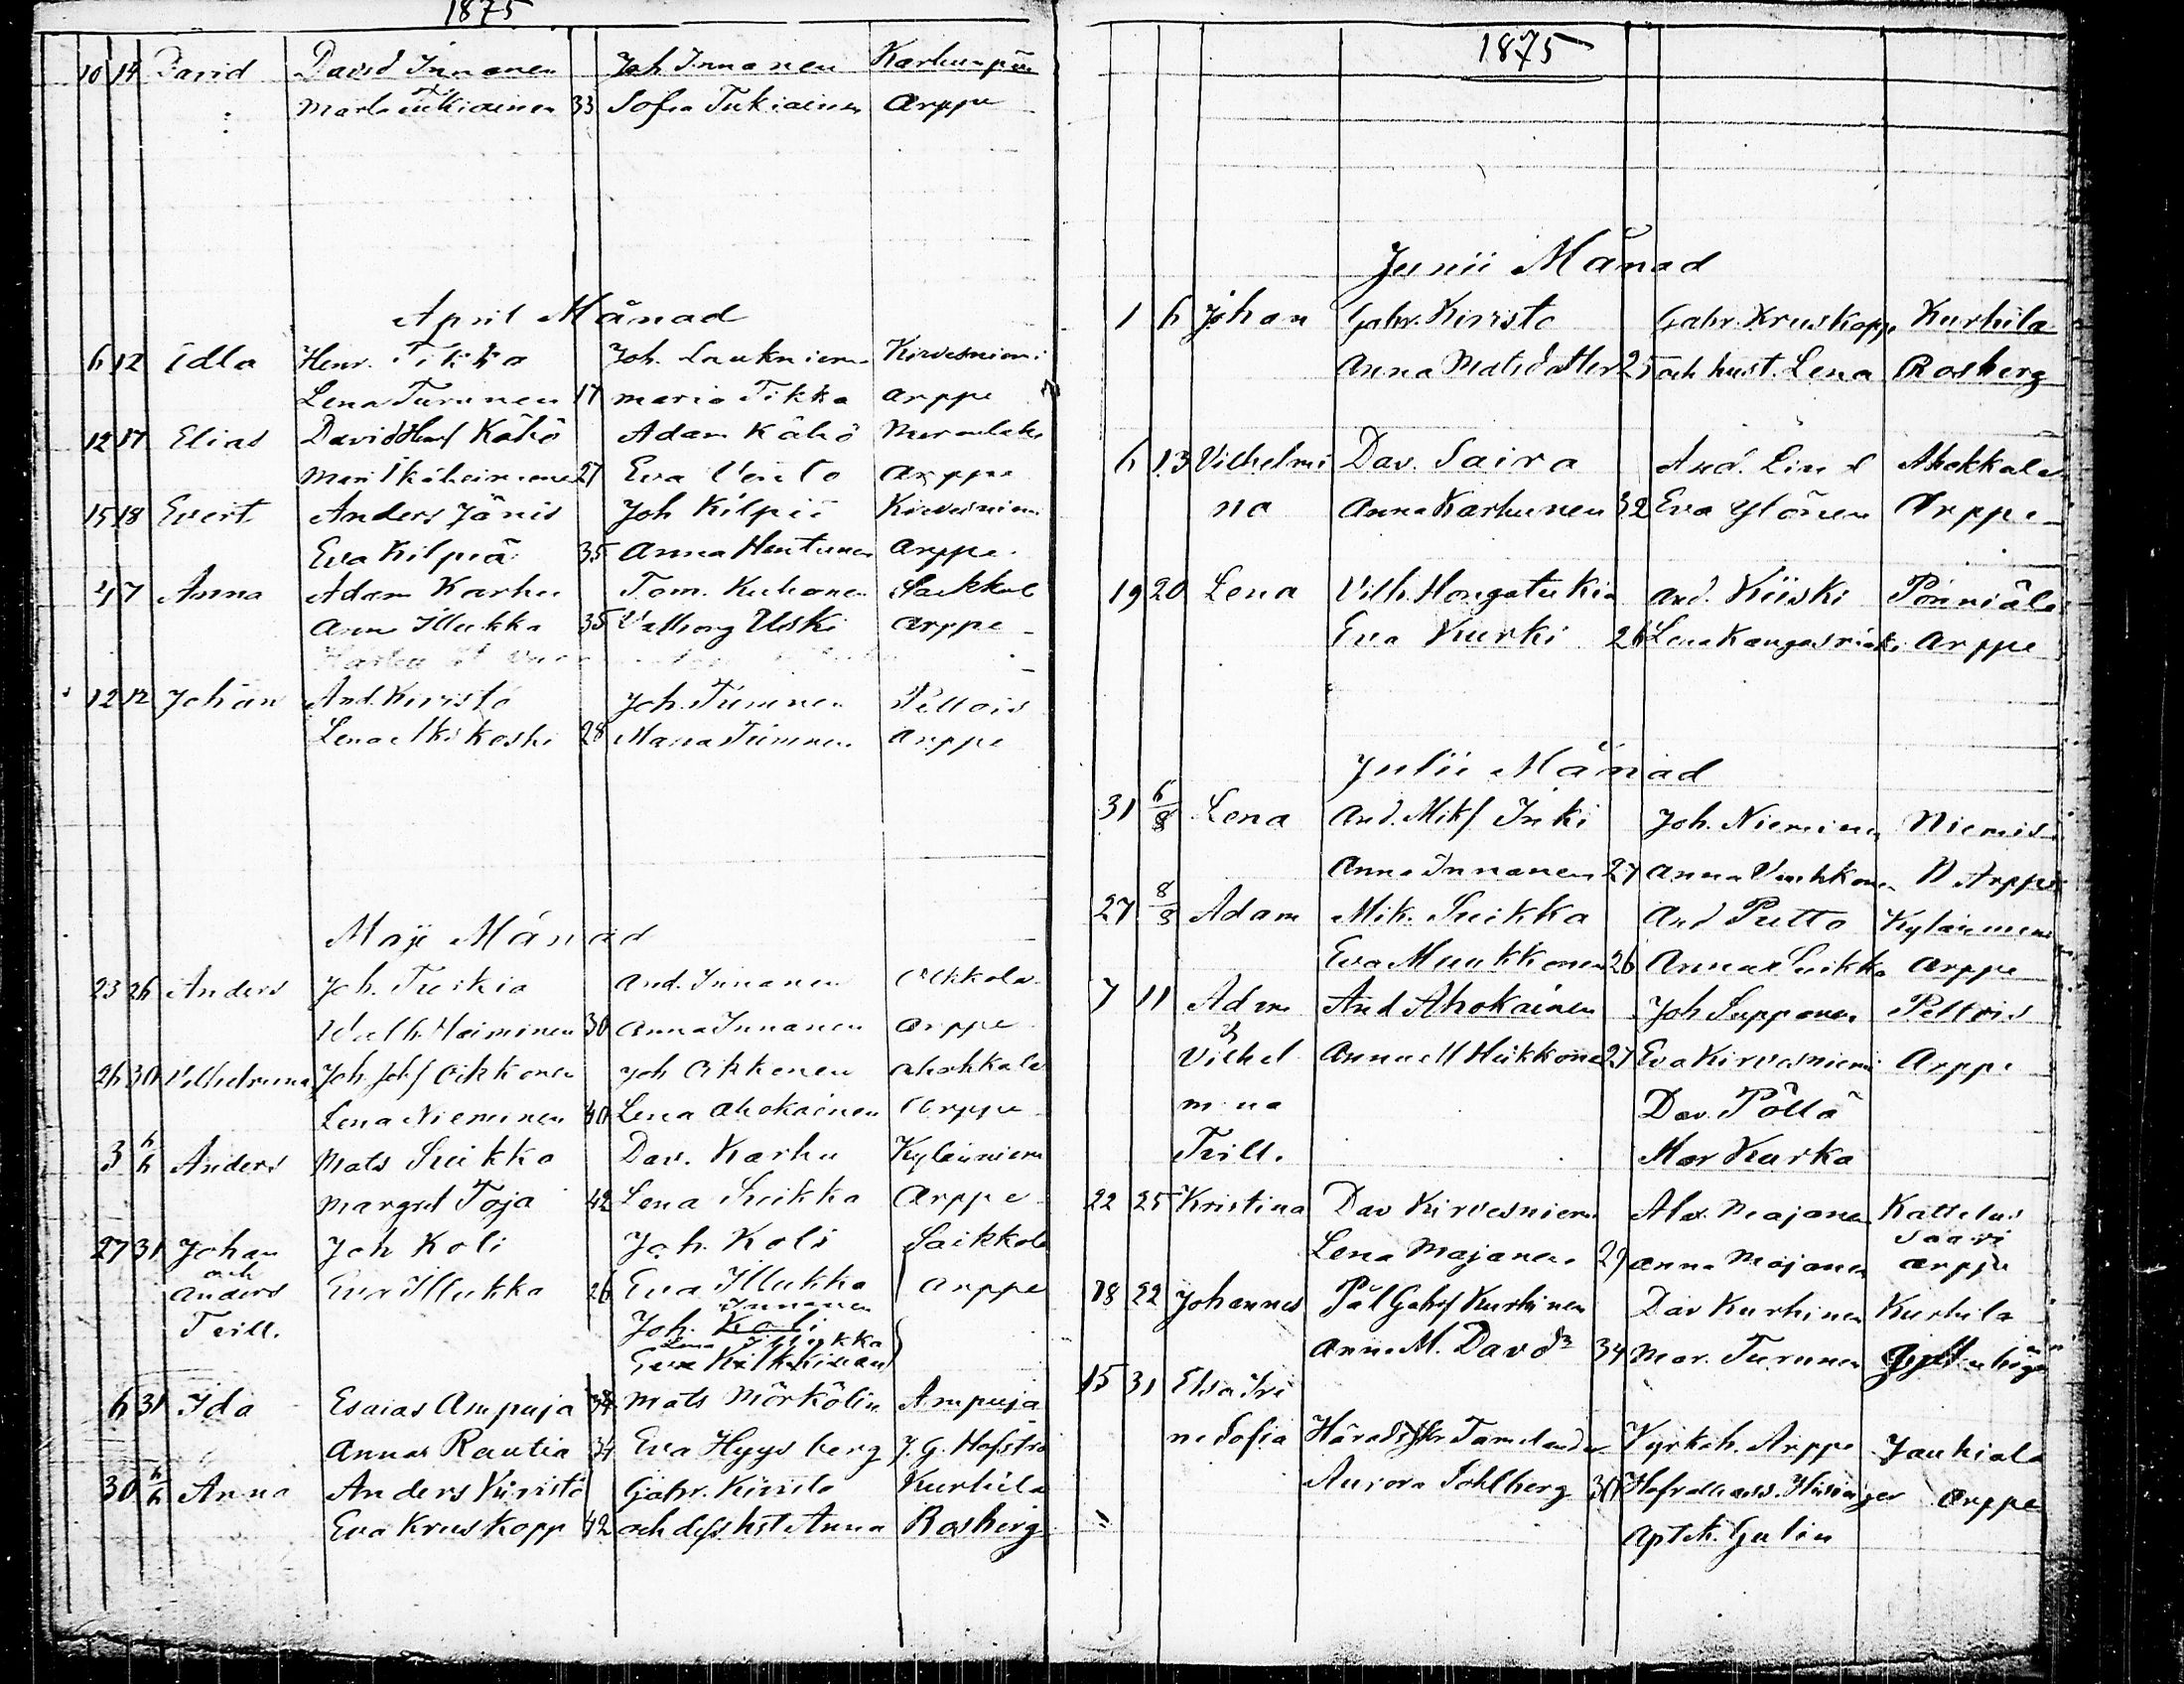 1875
10 14 David David Innanen Joh Innanen Karhunpää
Marta Tukiainen 33 Sofia Tukiainen Arppe
April Månad
6 12 Edla Henr. Tikka Joh. Laukniemi Kirvesniemi
Lena Turunen 17 Maria Tikka Arppe
12 17 Elias David Kähö Adam Kähö
27 Eva Vento Arppe
15 18 Evert Anders Jänis Joh Kilpiä Kirvesniemi
Eva Kilpiä 35 Anna Hentunen Arppe
4 7 Anna Adam Karhu Tom. Kuhonen Saikkol
Ann Illukka 35 Valborg Uski Arppe
12 12 Johan And. Kiristo Joh. Timmen Peltois
Lena 28 Maria Timmen Arppe
Maji Månad
23 26 Anders Joh. Tuskia And. Innanen Ahkkola
Heiminen 30 Anna Innanen Arppe
26 30 Vilhelmina Joh. Johs Oikkonen Joh Oikkonen Ahokkala
Lena Nieminen 40 Lena Ahokainen Arppe
3 6/6 Anders Mats Suikka Dav. Karhu Kyläniemi
Margret Toja 42 Lena Suikka Arppe
27 31 Johan Joh Koli Joh. Koli Saikkola
och
Anders Eva Illukka 26 Eva Illukka Arppe
Innanen
Tvill. Joh. Koli
Lena Illukka
Eva
6 31 Ida Esaias Ampuja 34 Mats Mörkölin Ampuja
Anna Rautia 34 Eva Hyysberg J. G. Hofstr
30 6/6 Anna Anders Kiristö Gabr. Kiristo Kurhila
Eva Kruskopp 42 och dess hst Anna Rosberg
1875
Junii Månad
1 6 Johan Gabr. Kiristo Gabr. Kruskopp Kurhila
Anna Matsdotter 25 och hust. Lena Rosberg
6 13 Vilhelmi Dav. Saira And. Lind Ahokkala
na Anna Karhunen 32 Eva Ylönen Arppe
19 20 Lena Vilh. Hongatukia And. Kiiski Pönniälä
Eva Kurki 26 Lena Kangasniemi Arppe
Julii Månad
31 6/8 Lena And. Miks Inki Joh. Nieminen Niemis
Anna Innanen 27 Anna N Arppe
27 8/8 Adam Mik. Suikka And Putto Kyläniemi
Eva Muukkonen 26 Anna Suikka Arppe
7 11 Adam And Ahokainen Joh Supponen Peltois
&
Vilhel Anna M Hiikkonen 27 Eva Kirvesniemi Arppe
mina Dav. Pöllä
Tvill. Mar Kurka
22 25 Kristina Dav Kirvesniemi Alex. Majanen Kattelus
saari
Lena Majanen 29 Anna Majanen Arppe
18 22 Johannes Pål Gabrs Kurhinen Dav Kurhinen Kurhila
Anna M. Davdr 34 Mar. Turunen
15 31 Elsa Iri
ne Sofia Häradsskr Tamelander Kyrkoh. Arppe Jauhiala
Aurora Sohlberg 30 Hofrattsass. Hisinger Arppe
Aptek. Gulin